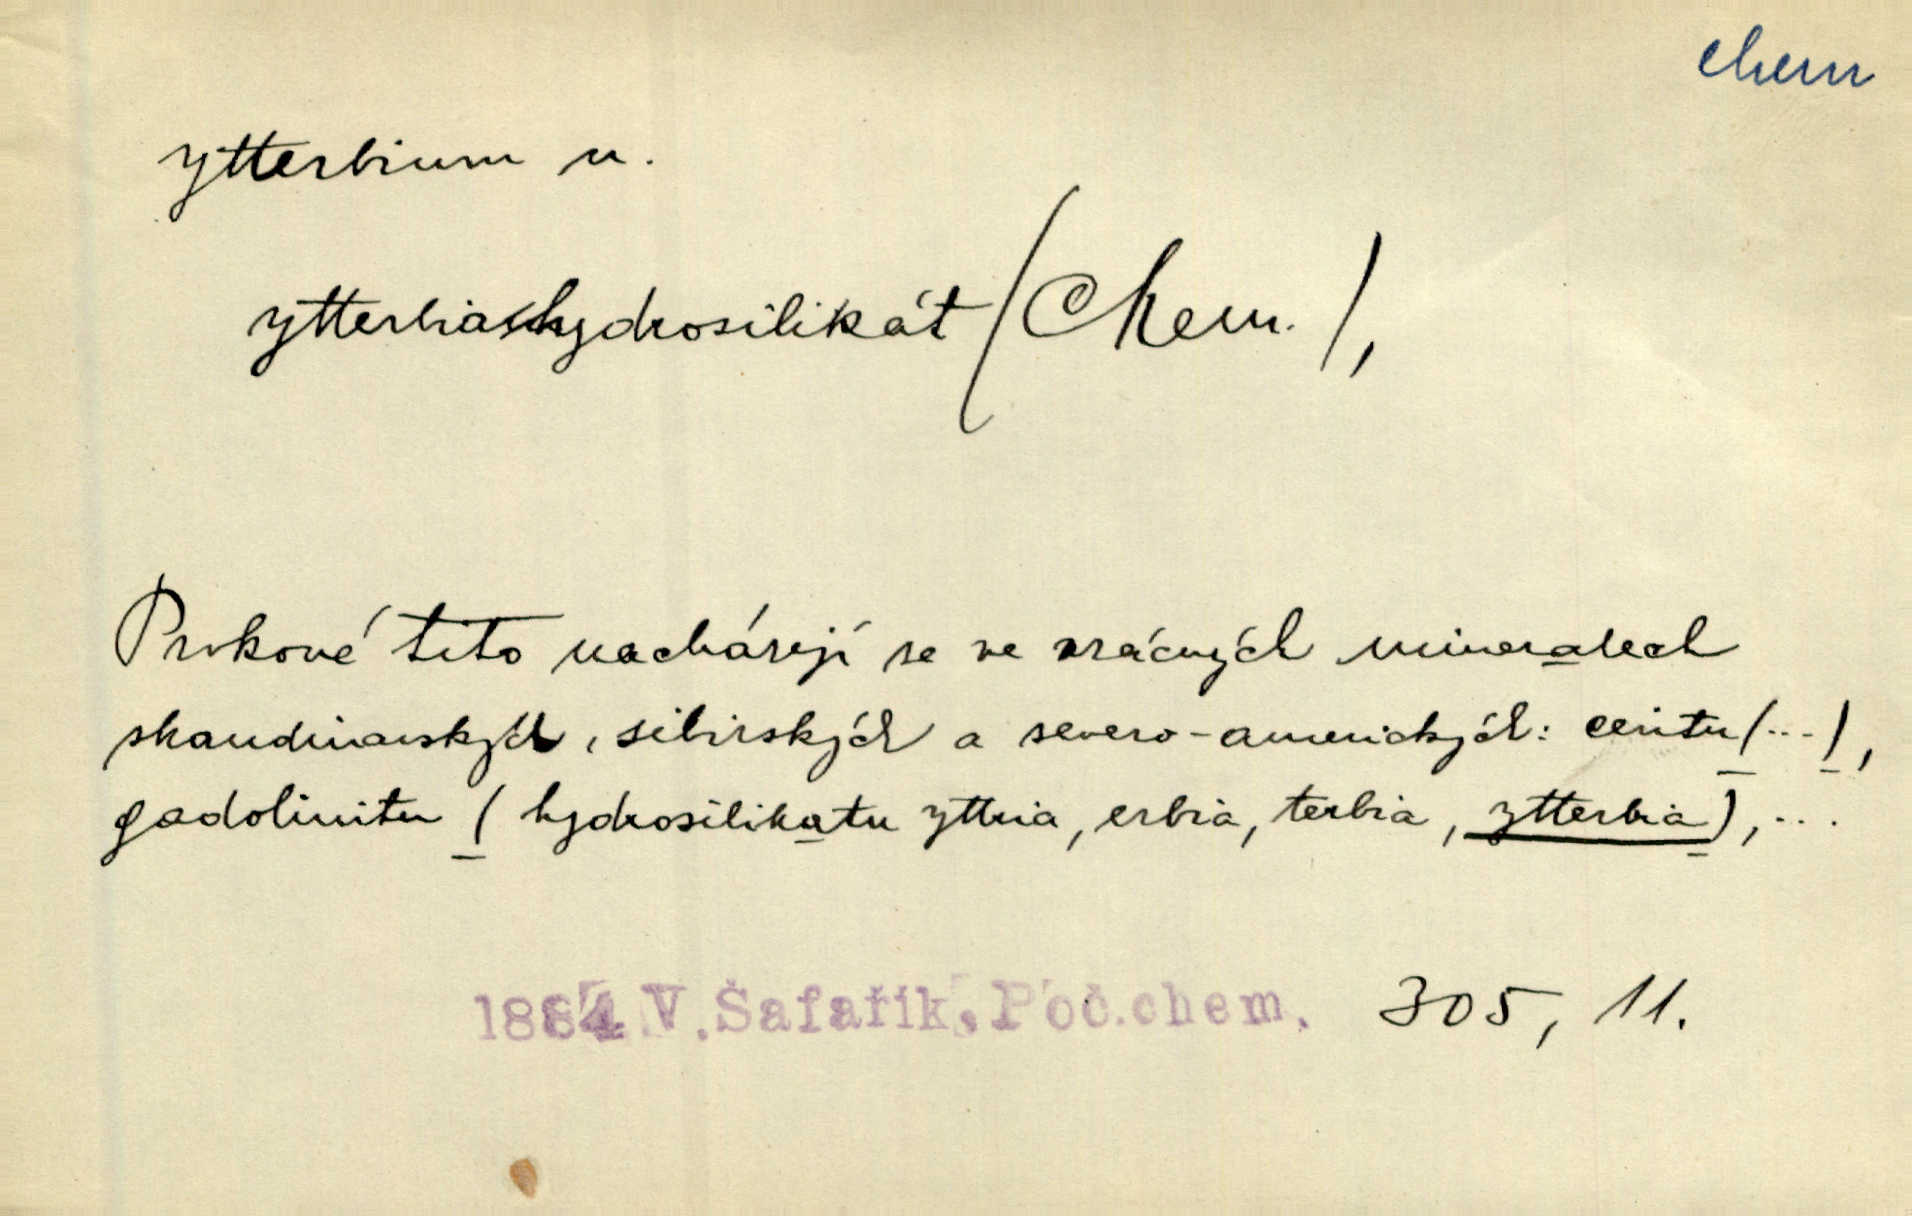 chem
ytterbium n.
ytterbia hydrosilikát (Chem.),
Prvkové tito nacházejí se ve vzácných mineralech
skandinavských, sibirských a severo-amerických: ceritu (...),
gadolinitu (hydrosilikatu yttria, erbia, terbia, ytterbia), ...
1884 V. Šafařík, Poč.chem. 305, 11.